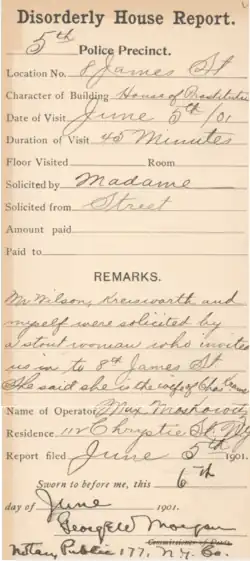 Disorderly House Report.
5th Police Precinct.
Location No. 8 James St
Character of Building House of Prostitution
Date of Visit June 5th/01
Duration of Visit 45 Minutes
Floor Visited Room
Solicited by Madame
Solicited from Street
Amount paid
Paid to
REMARKS.
Mr Wilson, Kreisworth and
myself were solicited by
a stout woman who invites
us in to 8th James St.
She said she is the wife of Chas
Name of Operator Max Moskowitz
Residence 112 Chrystie St. NY
Report filed June 5th 1901.
Sworn to before me, this 6th
day of June 1901.
George W Morgan
Commissioner of Deeds
Notary Public 177, N.Y. Co.